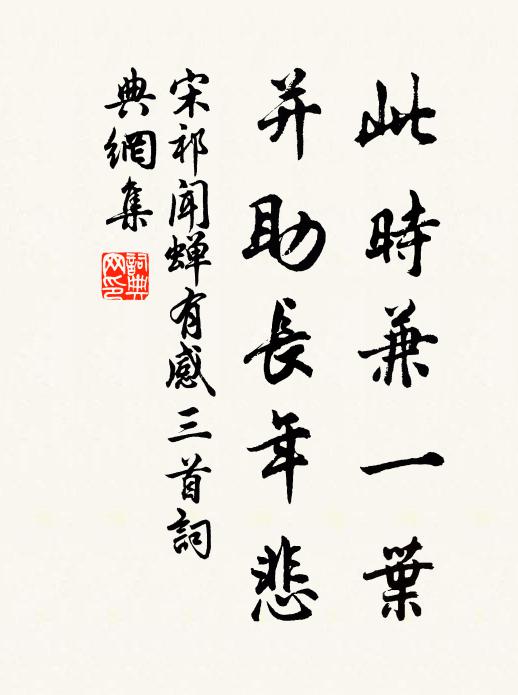 此時兼一葉
并助長年悲
宋祁聞蟬有感三首詞
典網集
詞典網印